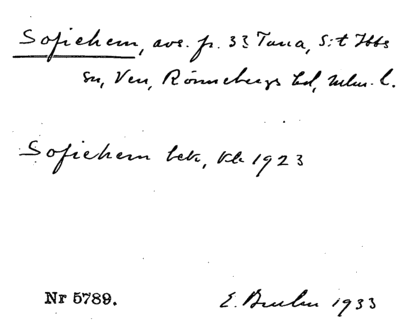 Sofiehem, avs. fr. 33 Tuna, S:t Ibbs
sn, Ven, Rönnebergs hd, Mlm. l.
Sofiehem bek, Kb 1923
Nr 5789.
E. 1933